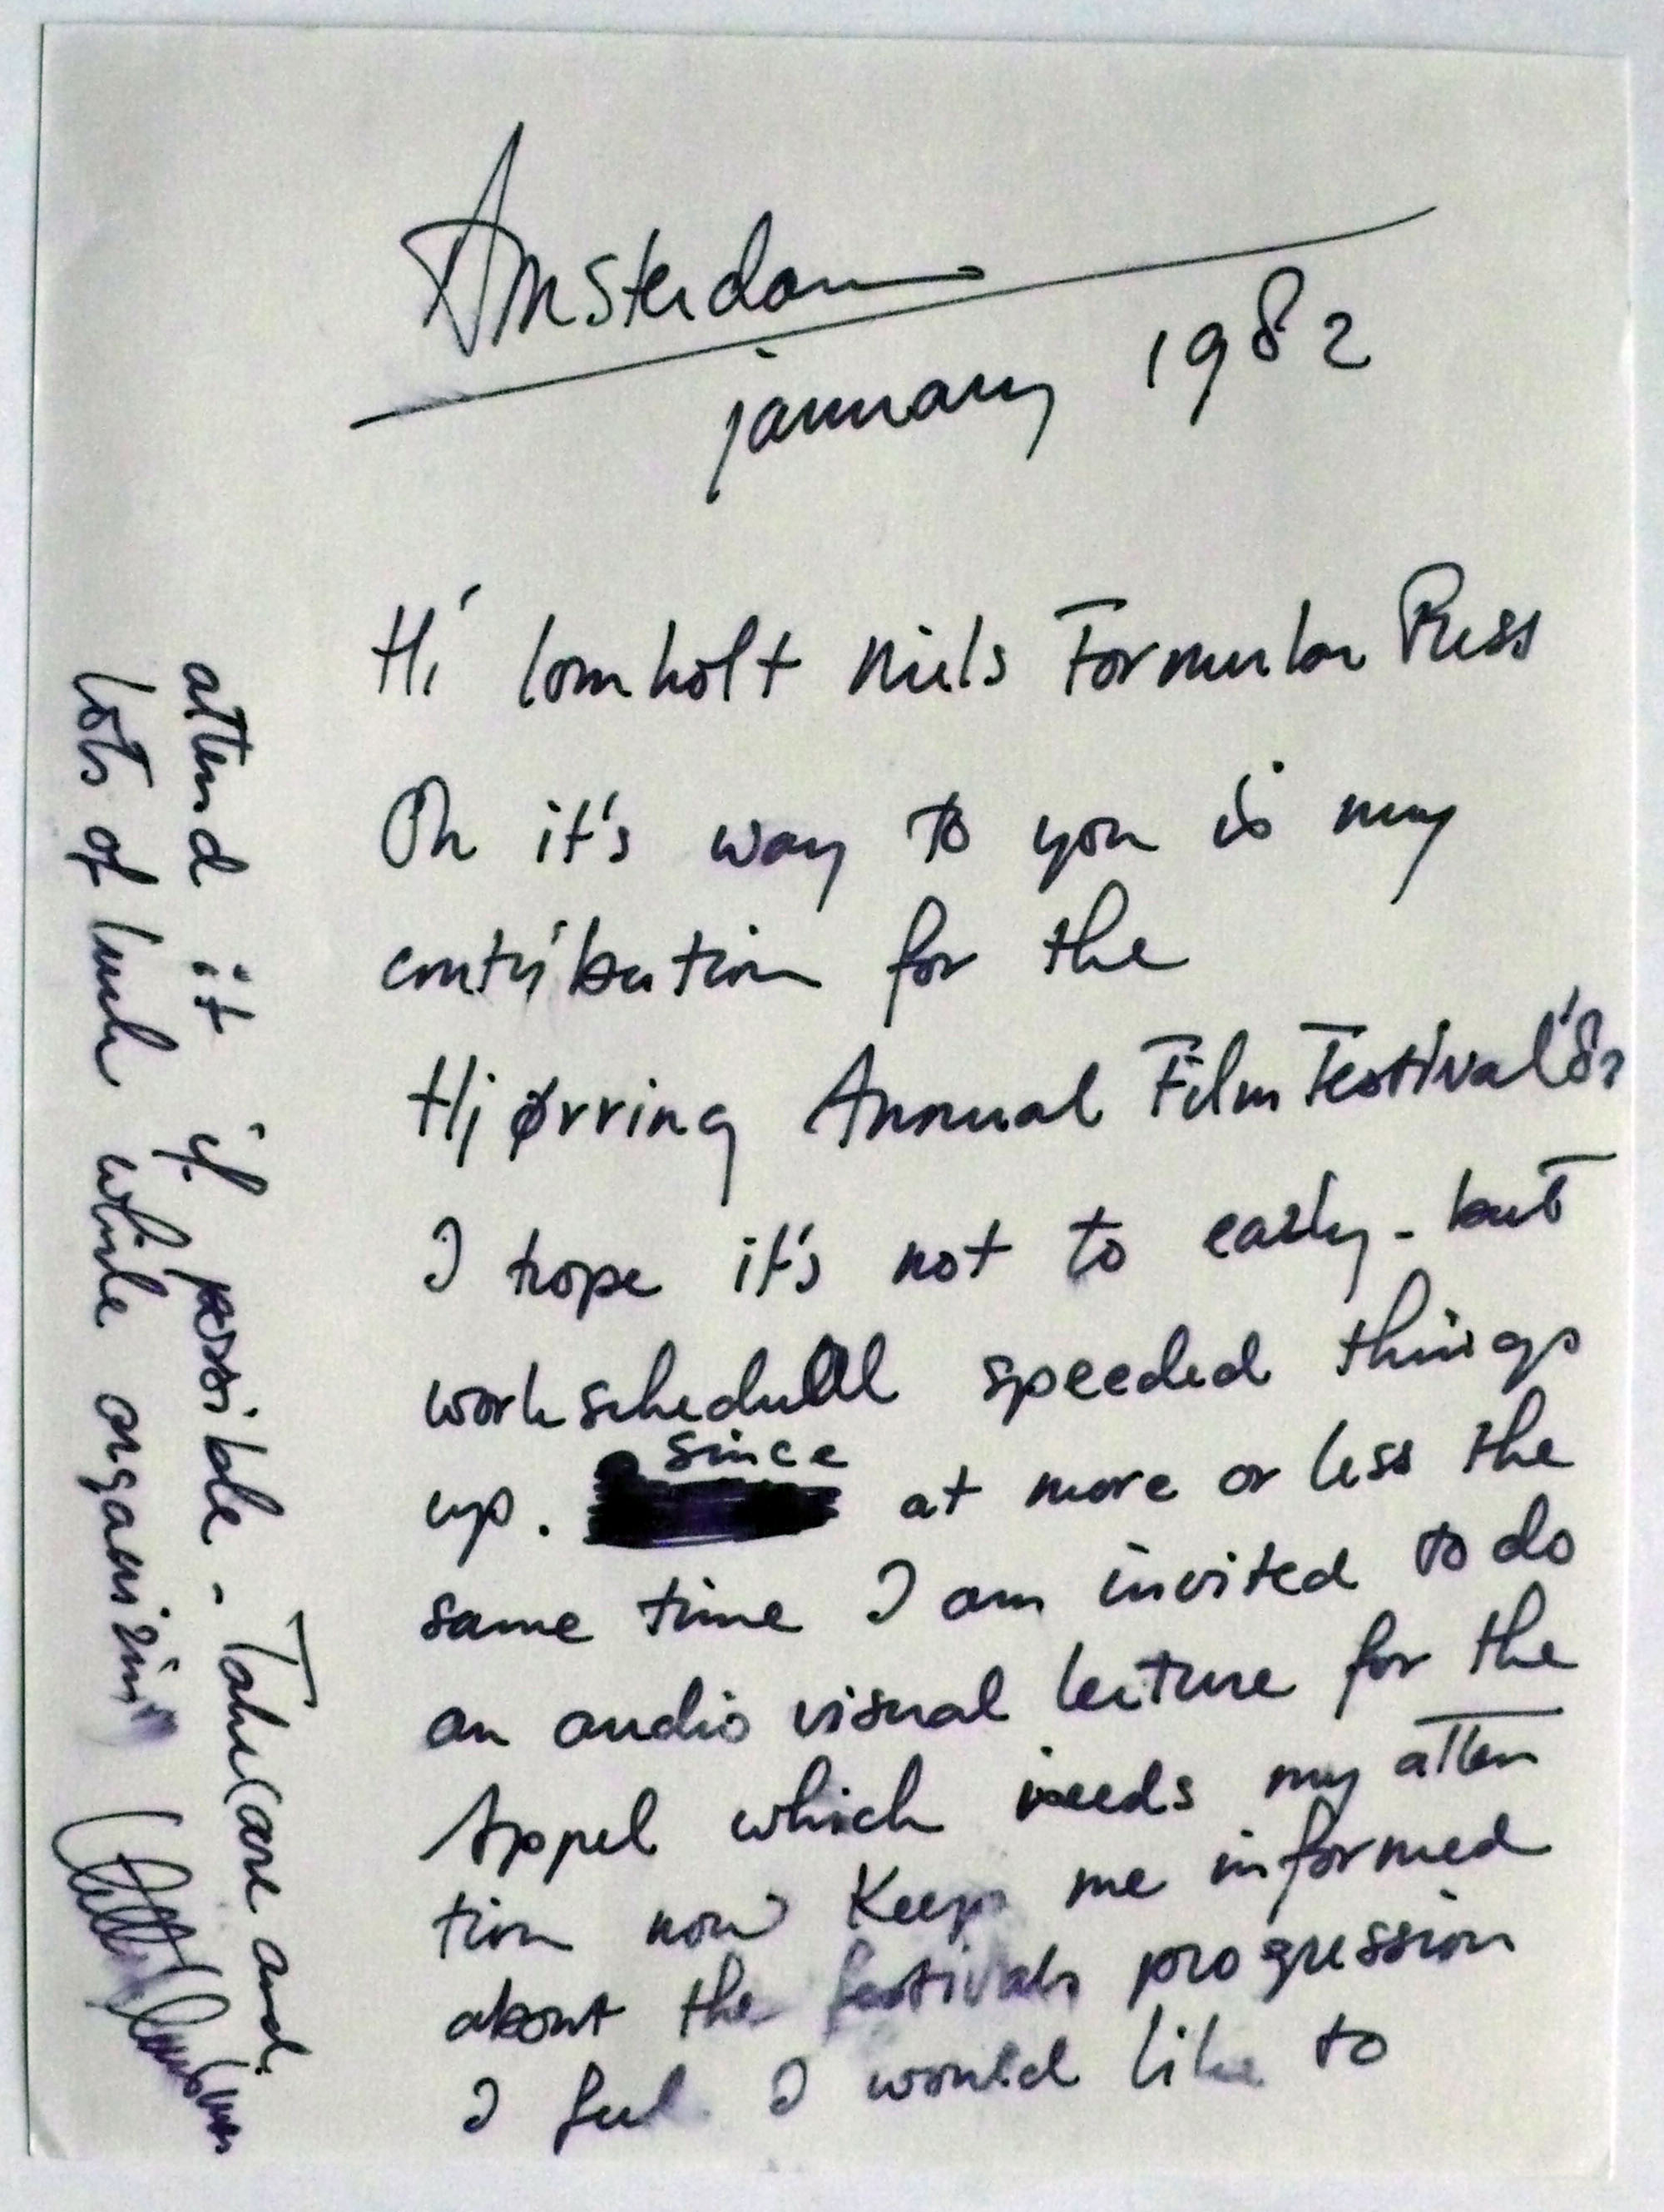 Amsterdam
january 1982
Hi lomholt Niels Formular Press
On it's way to you is my
contribution for the
Hjørring Annual Film Festival '82
I hope it's not to early - but
work schedull speeded things
up. since at more or less the
same time I am invited to do
an audio visual lecture for the
Appel which needs my atten
tion now Keep me informed
about the festivals progression
I feel I would like to
attend it if possible - Take Care and
lots of luck while organizing